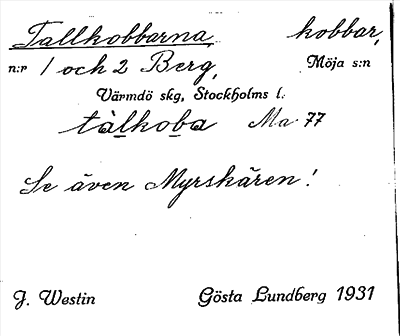 Tallkobbarna, kobbar,
n:r 1 och 2 Berg, Möja s:n
Värmdö skg, Stockholms l.
tàlkoba Ma 77
Se även Myrskären!
J. Westin Gösta Lundberg 1931